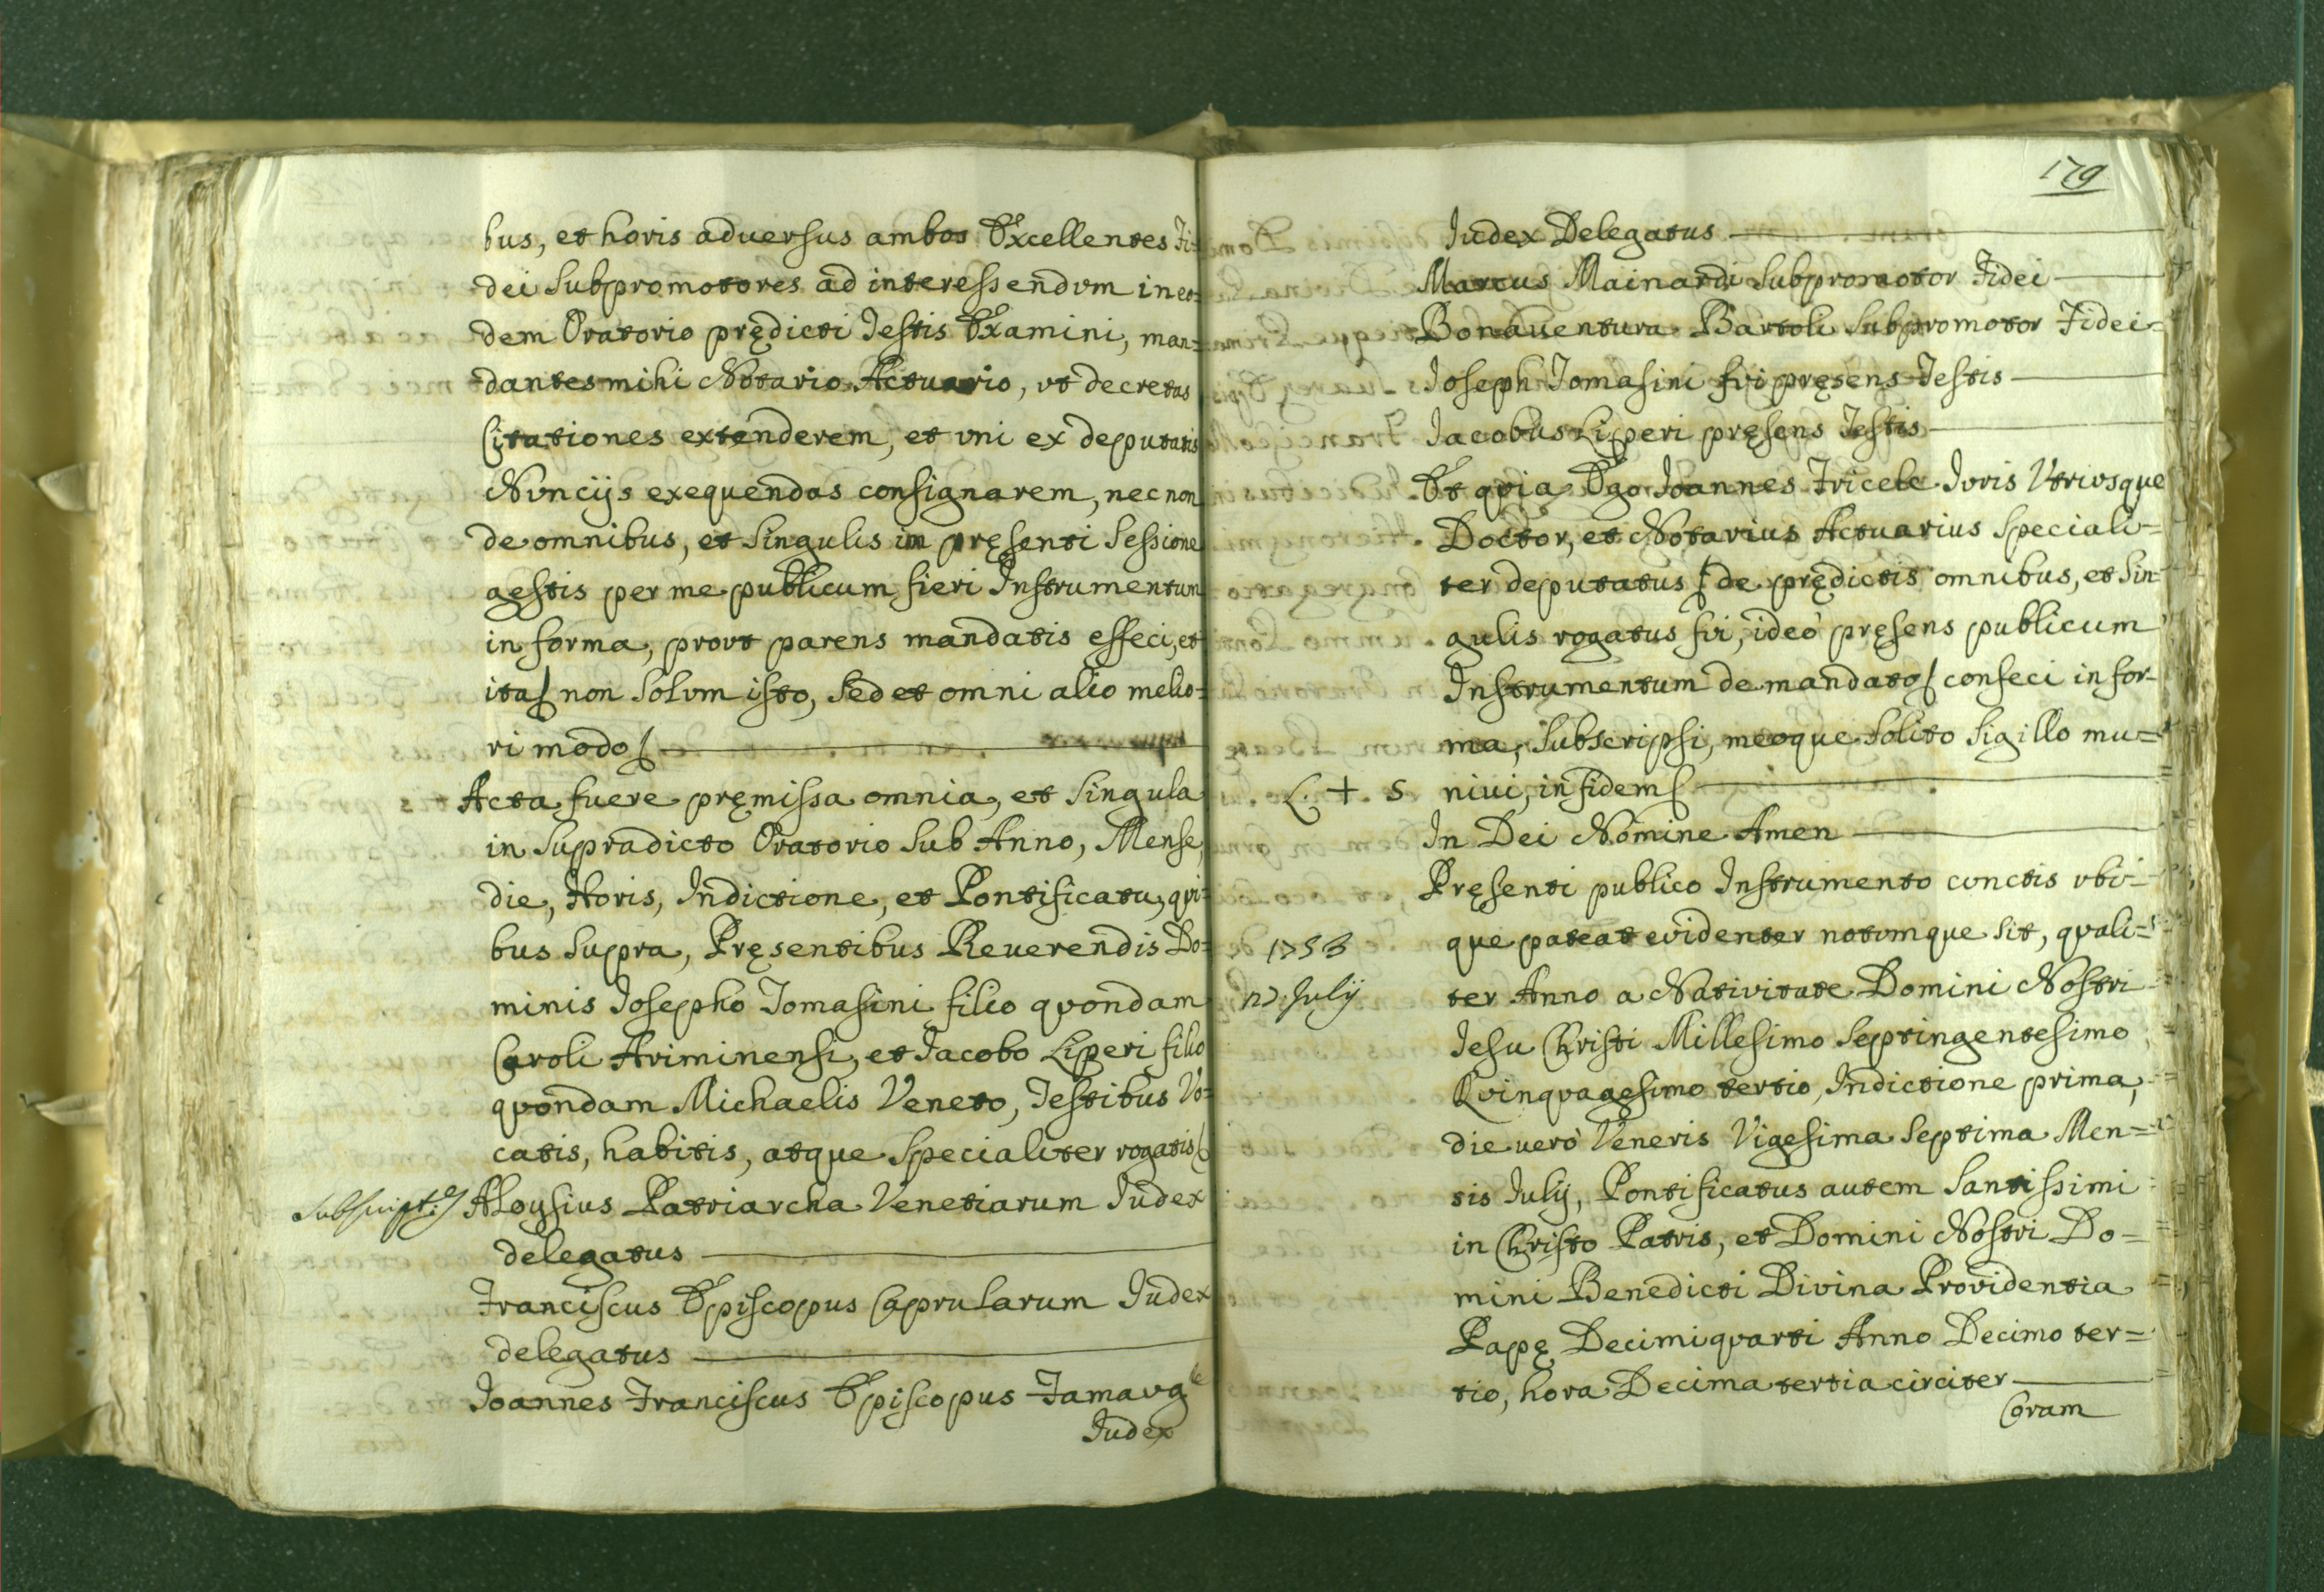 bus, et horis adversus ambos Excellentes Fi-
dei Subpromotores ad interessendum in eo=
dem Oratorio prędicti Testis Examini, man=
dantes mihi Notario Actuario, vt decretas
Citationes extenderem, et vni ex deputatis
Nuncijs exequendas consignarem, nec non
de omnibus, et Singulis in pręsenti Sessione
gestis per me publicum fieri Instrumentum
in forma, provt parens mandatis effeci, et
ita non Solum isto, Sed et omni alio melio=
ri modo
Acta fuere pręmissa omnia, et Singula
in Supradicto Oratorio Sub Anno, Mense,
die, Horis, Indictione, et Pontificatu, qui=
bus Supra, Pręsentibus Reuerendis Do=
minis Josepho Tomasini filio quondam
Caroli Ariminensi, et Jacobo Liperi filio
quondam Michaelis Veneto, Testibus Vo=
catis, habitis, atque Specialiter rogatis
Subscript. Aloysius Patriarcha Venetiarum Judex
delegatus
Franciscus Episcopus Caprularum Judex
delegatus
Joannes Franciscus Episcopus Famaug
Judex
179
Judex Delegatus
Marcus Mainardi Subpromotor Fidei
Bonauentura Bartoli Subpromotor Fidei=
Joseph Tomasini fui pręsens Testis
Jacobus Liperi pręsens Testis
Et quia Ego Joannes Fricele Juris Vtriusque
Doctor, et Notarius Actuarius Speciali=
ter deputatus de prędictis omnibus, et Sin=
gulis rogatus fui, ideò pręsens publicum
Instrumentum de mandato confeci in for-
ma, Subscripsi, meoque Solito Sigillo mu=
L. + S niui, in fidem
In Dei Nomine Amen
Pręsenti publico Instrumento cunctis vbi-
que pateat evidenter notumque Sit, quali=
1753
27 July
ter Anno a Nativitate Domini Nostri
Jesu Christi Millesimo Septingentesimo
Quinquagesimo tertio, Indictione prima,
die uerò Veneris Vigesima Septima Men=
sis July, Pontificatus autem Santissimi
in Christo Patris, et Domini Nostri Do=
mini Benedicti Divina Providentia
Papę Decimiquarti Anno Decimo ter=
tio, hora Decima tertia circiter
Coram